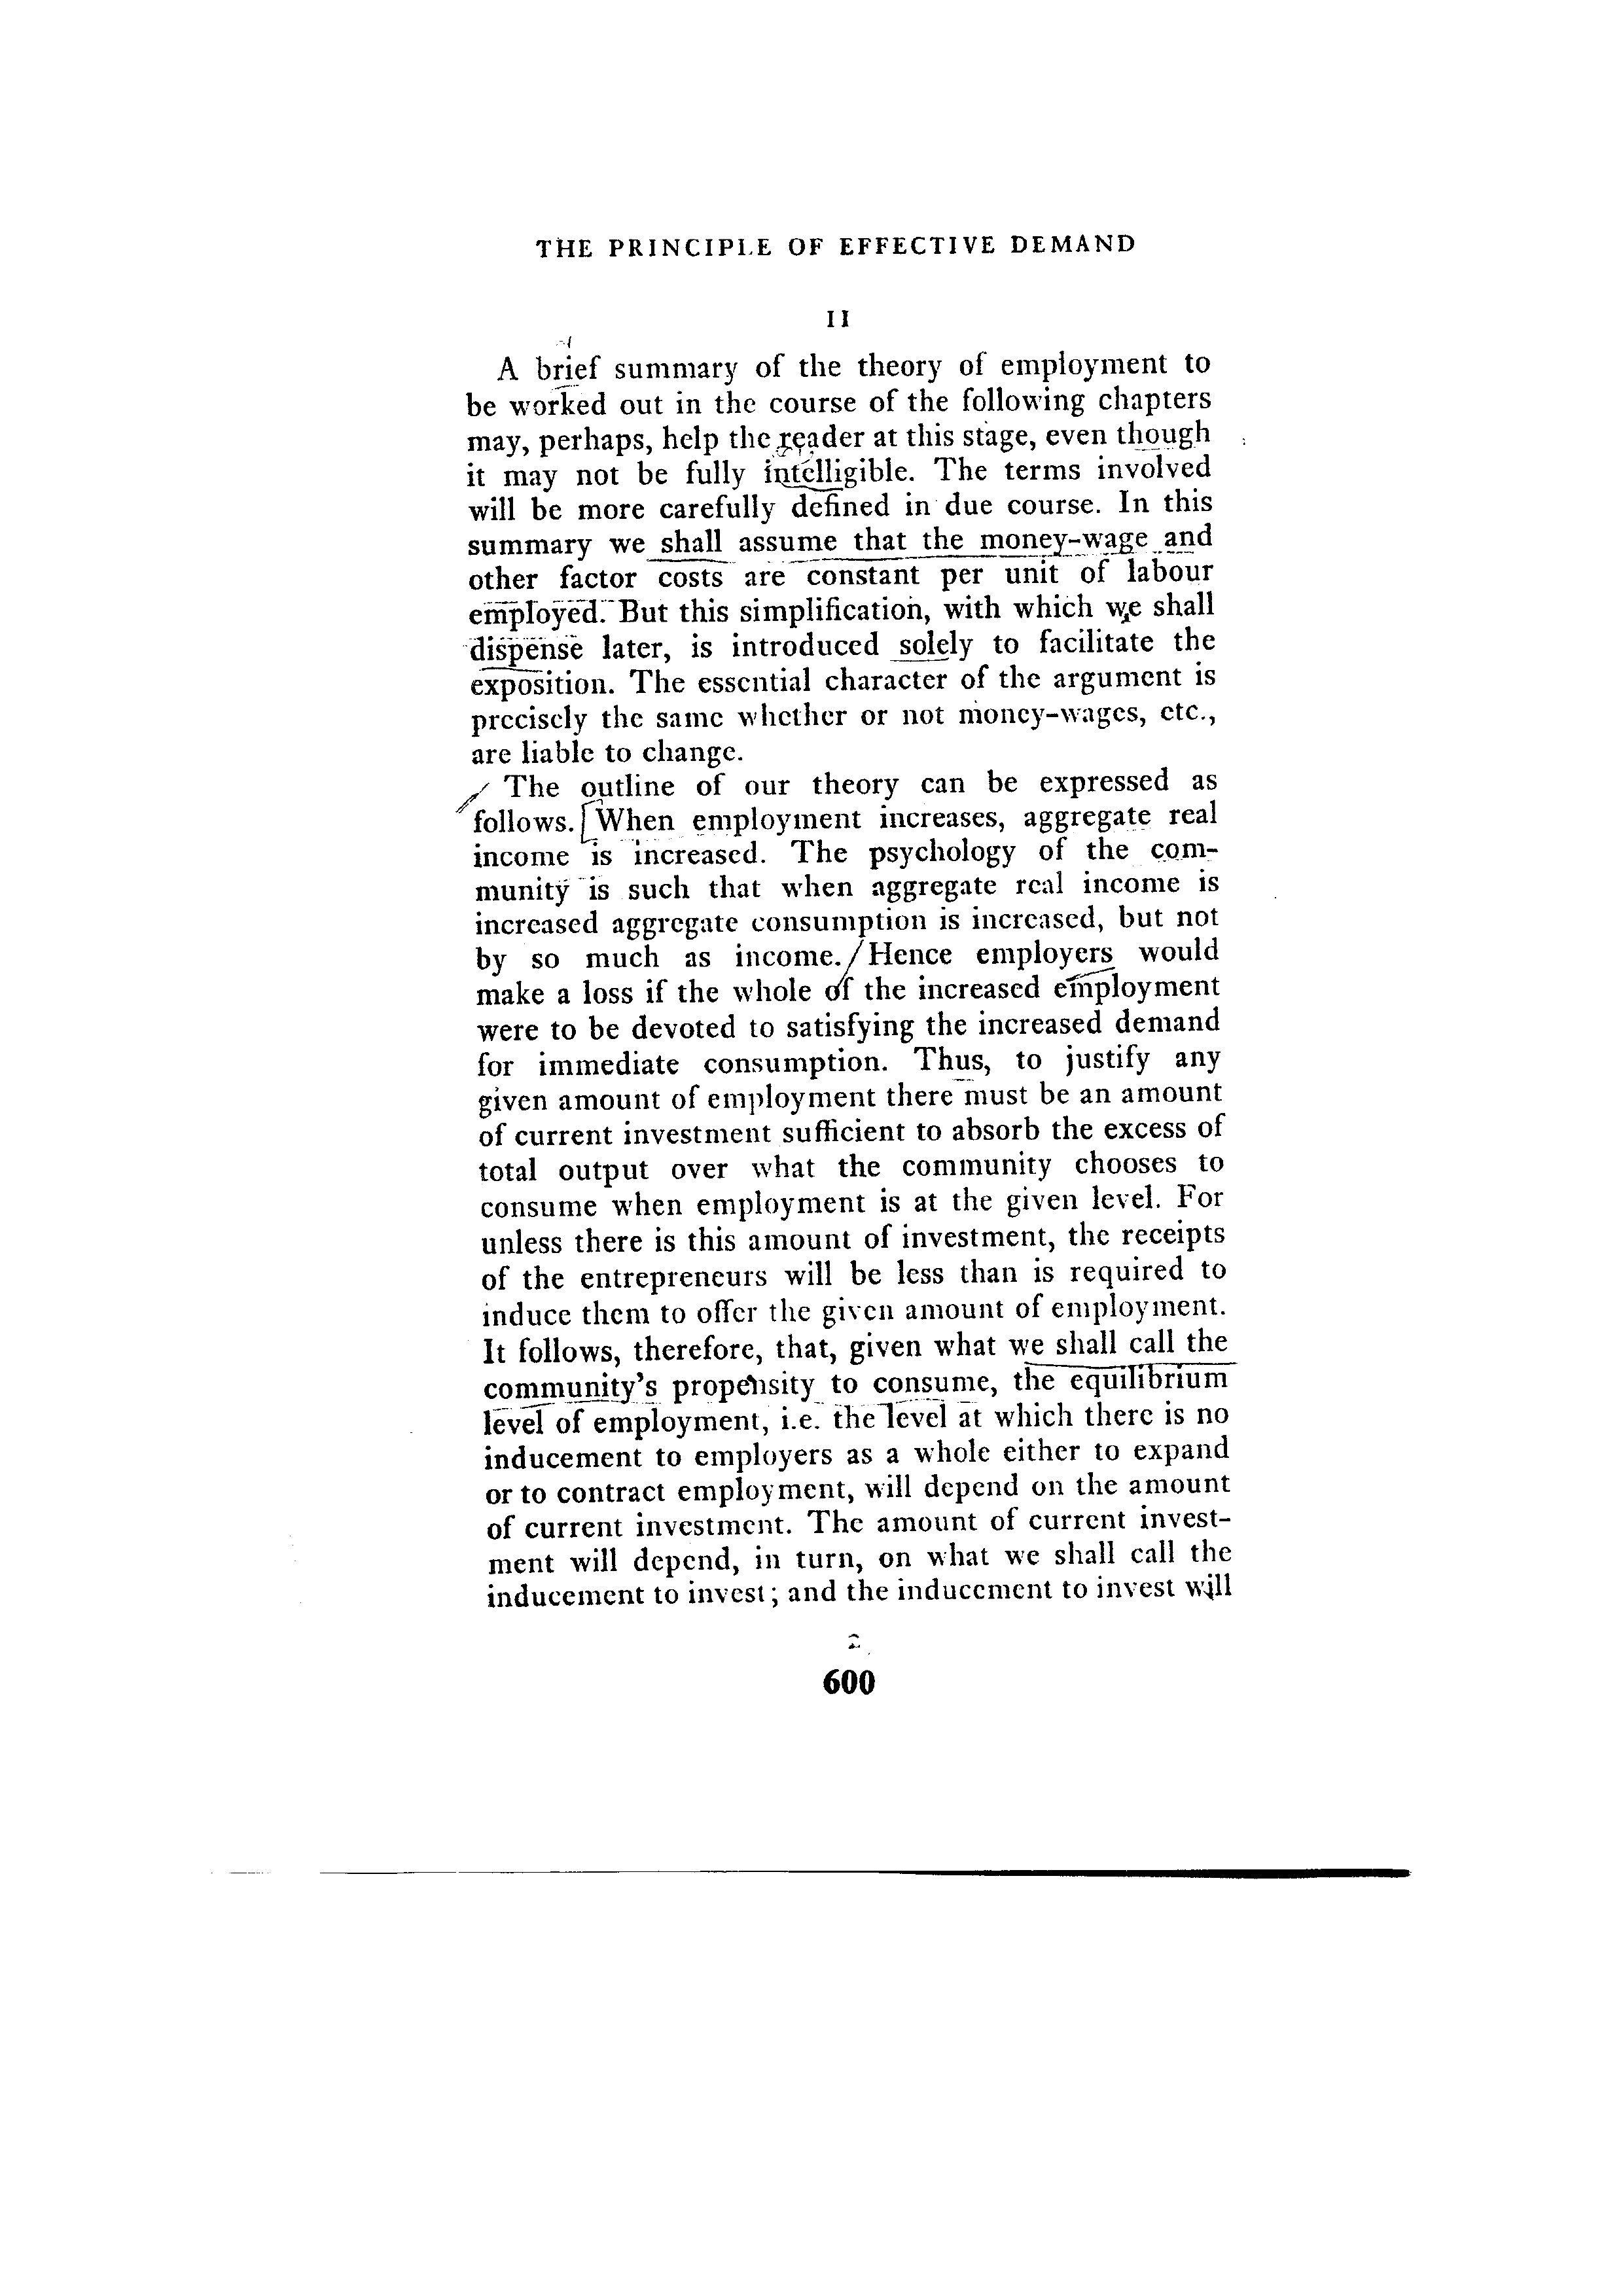 THE PRINCIPLE OF EFFECTIVE DEMAND
II
A brief summary of the theory of employment to
be worked out in the course of the following chapters
may, perhaps, help the reader at this stage, even though
it may not be fully intelligible. The terms involved
will be more carefully defined in due course. In this
summary we shall assume that the money-wage and
other factor costs are constant per unit of labour
employed. But this simplification, with which we shall
dispense later, is introduced solely to facilitate the
exposition. The essential character of the argument is
precisely the same whether or not money-wages, etc.,
are liable to change.
The outline of our theory can be expressed as
follows. [When employment increases, aggregate real
income is increased. The psychology of the com-
munity is such that when aggregate real income is
increased aggregate consumption is increased, but not
by so much as income./Hence employers would
make a loss if the whole of the increased employment
were to be devoted to satisfying the increased demand
for immediate consumption. Thus, to justify any
given amount of employment there must be an amount
of current investment sufficient to absorb the excess of
total output over what the community chooses to
consume when employment is at the given level. For
unless there is this amount of investment, the receipts
of the entrepreneurs will be less than is required to
induce them to offer the given amount of employment.
It follows, therefore, that, given what we shall call the
community's propensity to consume, the equilibrium
level of employment, i.e. the level at which there is no
inducement to employers as a whole either to expand
or to contract employment, will depend on the amount
of current investment. The amount of current invest-
ment will depend, in turn, on what we shall call the
inducement to invest; and the inducement to invest will
600